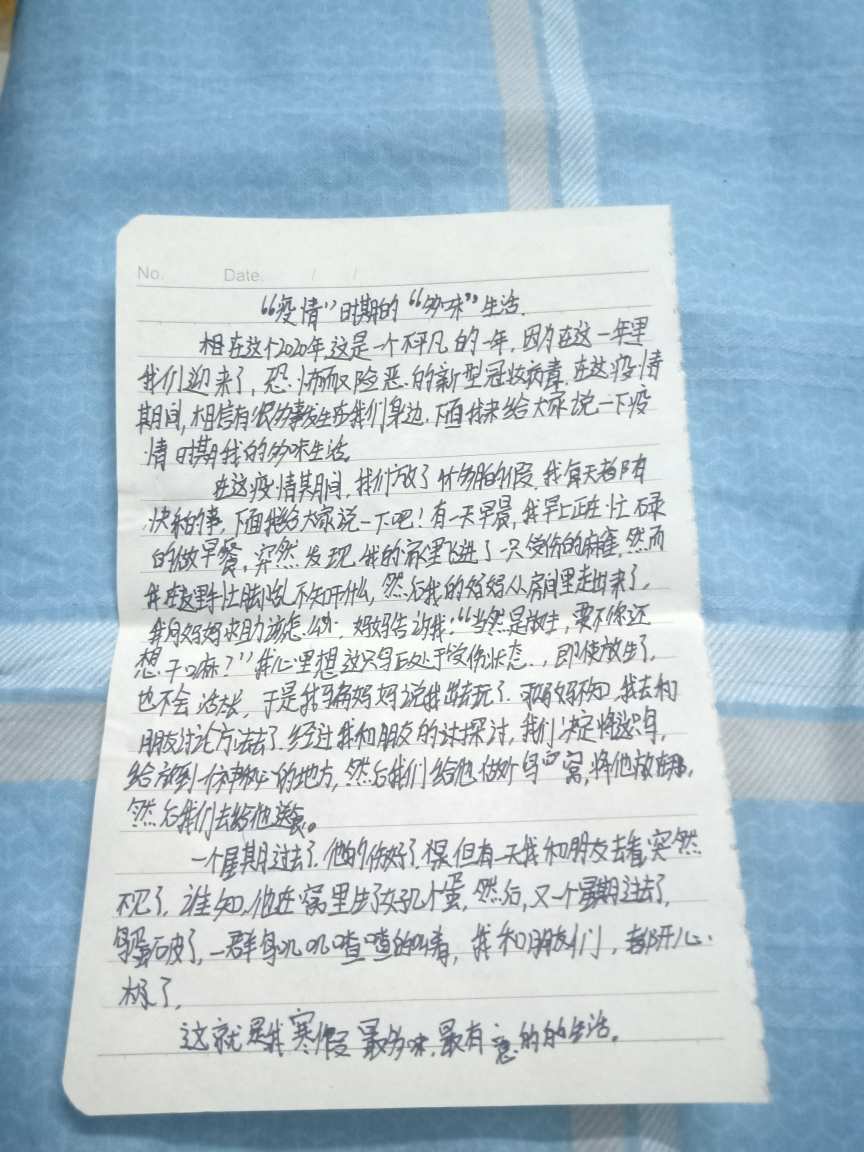 No.          Date.      /      /
“疫情”时期的“多味”生活.
相在这个2020年,这是一个不平凡的一年,因为在这一年里
我们迎来了,恐怖而又险恶的新型冠状病毒.在这疫情
期间,相信有很多事发生在我们身边.下面我来给大家说一下疫
情时期我的多味生活。
在这疫情期间,我们放了什多的假,我每天都有
快和事,下面我给大家说一下吧!有一天早晨,我早上正在忙碌
的做早餐,突然发现,我的家里飞进了一只受伤的麻雀,然而
我在这里手忙脚乱不知干什么,然后我的妈妈从房间里走出来了,
我向妈妈求助该怎么办,妈妈告诉我:“当然是放生,要不你还
想干嘛?”我心里想这只鸟正处于受伤状态..,即使放生了,
也不会活长,于是我骗妈妈说我出去玩了.妈妈不知,我去和
朋友讨论方法去了.经过我和朋友的讨探讨,我们决定将这只鸟,
给放到一个的地方,然后我们给他做个鸟窝,将他放在那,
然后我们去给他送食。
一个星期过去了.他的伤好了.但有一天我和朋友去看,突然
不见了,谁知,他在窝里生了好几个蛋,然后,又一个星期过去了,
鸟蛋破了,一群鸟叽叽喳喳的叫着,我和朋友们,都开心.
极了,
这就是我寒假最多味,最有意的的生活。